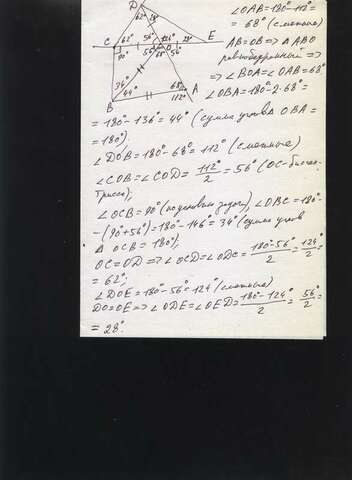 ∠OAB=180°-112°=
= 68° (смежные)
AB=OB => △ABO
равнобедренный =>
=> ∠BOA=∠OAB=68°
∠OBA=180°-2·68°=
= 180°-136°= 44° (сумма углов △OBA =
= 180°).
∠DOB=180°-68°= 112° (смежные)
∠COB=∠COD= 112°/2 = 56° (OC-биссек-
трисса);
∠OCB=90° (по условию задачи), ∠OBC=180°-
-(90°+56°)=180°-146°=34° (сумма углов
△ OCB = 180°);
OC=OD => ∠OCD=∠ODC= 180°-56°/2 = 124°/2 =
= 62°;
∠DOE=180°-56°=124° (смежные)
DO=OE => ∠ODE=∠OED= 180°-124°/2 = 56°/2 =
= 28°.
D
62° 28°
C 62° 56° 124° 28° E
90° 56° 68° O
34°
44° 68°
B 112° A